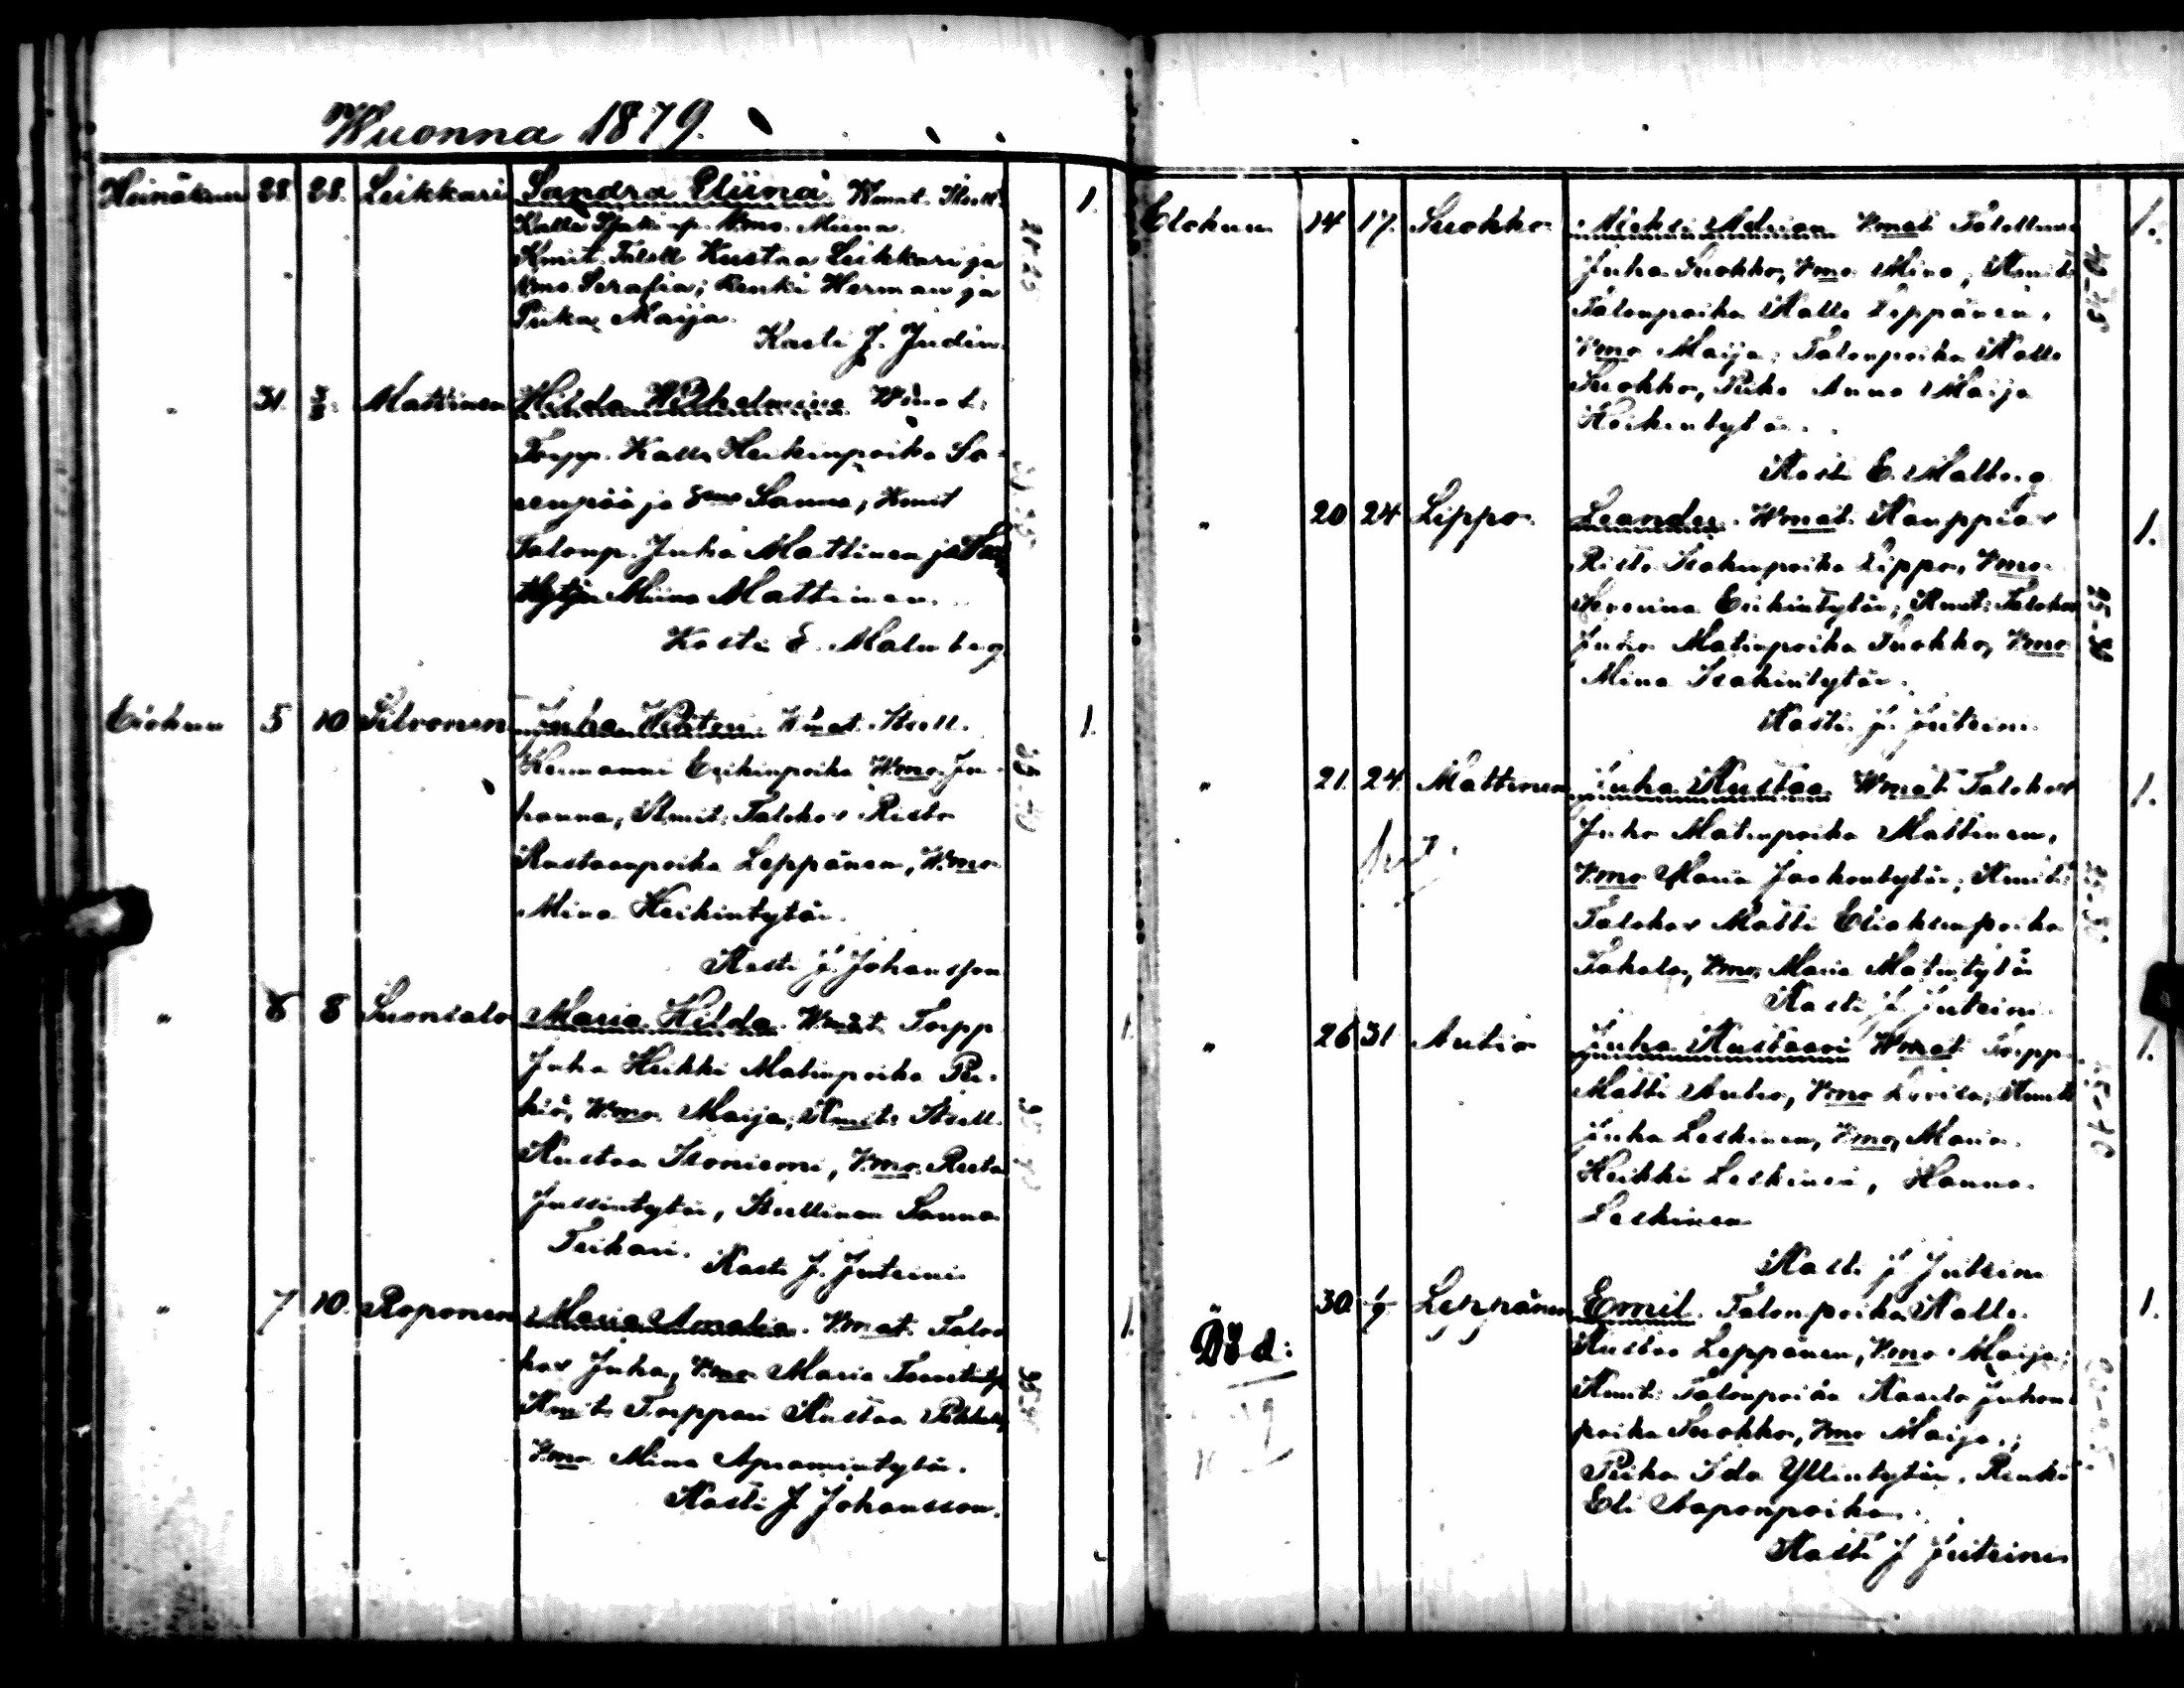 Wuonna 1879.
Heinäkuu 28. 28. Leikkari Sandra Eliina Wmat. Itsell.
Kalle Wmo. Miina.
Kmit. Itsell Kustaa Leikkari ja
Wmo Serafia; Renki Herman ja
Piika Maija.
Kasti J. Judin.
" 31. 3/8. Mattinen Hilda Wilhelmina Wmat.
Torpp. Kalle Heikinpoika Sa-
renpää ja Wmo Sanna; Kmit
Talonp. Juha Mattinen ja
Miina Mattinen.
Kasti E. Malmberg
Elokuu 5 10 Silvonen Juha Wihtori Wmat. Itsell.
Hermanni Erikinpoika Wmo. Ju-
hanna; Kmit. Talokas Risto
Kustaanpoika Leppänen, Wmo
Mina Heikintytär.
Kasti J. Johansson
" 6 8 Suonsalo Maria Hilda. Wmat Torpp
Juha Heikki Matinpoika
Wmo Maija; Kmit. Itsell.
Kustaa Isoniemi, Wmo. Reeta
Jussintytär, Itsellinen Sanna
Teikari.
Kasti J. Juteini
" 7 10. Roponen Maria Amalia. Wmat. Talo-
kas Juha, Wmo Maria
Kmit. Torppari Kustaa
Wmo Mina Apramintytär.
Kasti J Johansson.
Elokuu 14 17. Suokko Mikki Adrian Wmat Talollinen 1.
Juha Suokko, Wmo Mina, Kmit
Talonpoika Kalle Leppänen,
Wmo Maija; Talonpoika Kalle
Suokko, Piika Anna Maija
Heikintytär.
Kasti E. Malberg
" 20 24 Lippo Leander. Wmat. Kauppias 1.
Risto Isakinpoika Lippo, Wmo
Severina Erikintytär; Kmit: Talokas
Juha Matinpoika Suokko, Wmo
Mina Isakintytär.
Kasti J. Juteini.
" 21. 24. Mattinen Juha Kustaa Wmat Talokas 1.
Juha Matinpoika Mattinen,
Wmo Maria Jaakontytär; Kmit.
Talokas Matti Eliaksenpoika
Takala, Wmo, Maria Matintytär
Kasti J. Juteini.
" 26 31 Autio Juha Kustaavi Wmat Torpp. 1.
Matti Autio, Wmo Lovisa; Kmit
Juha Leskinen, Wmo, Maria.
Heikki Leskinen, Hanna
Leskinen
Kasti J Juteini
" 30 1/9 Leppänen Emil. Talonpoika Kalle 1.
Död: Kustaa Leppänen, Wmo Maija;
Kmit: Talonpoika Kaarlo Juhon-
poika Suokko, Wmo Maija;
Piika Ida Yllintytär, Renki
Eli Aaponpoika.
Kasti J Juteini